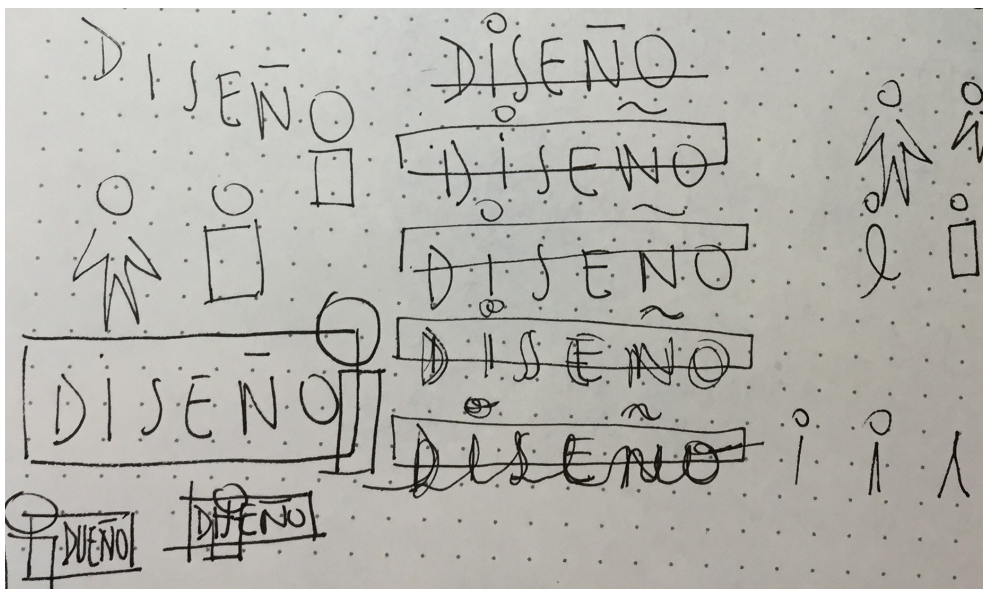 DISEÑO
DISEÑO
DISEÑO
DISEÑO
DISEÑO
DISEÑO
DISEÑO
DUEÑO
DISEÑO